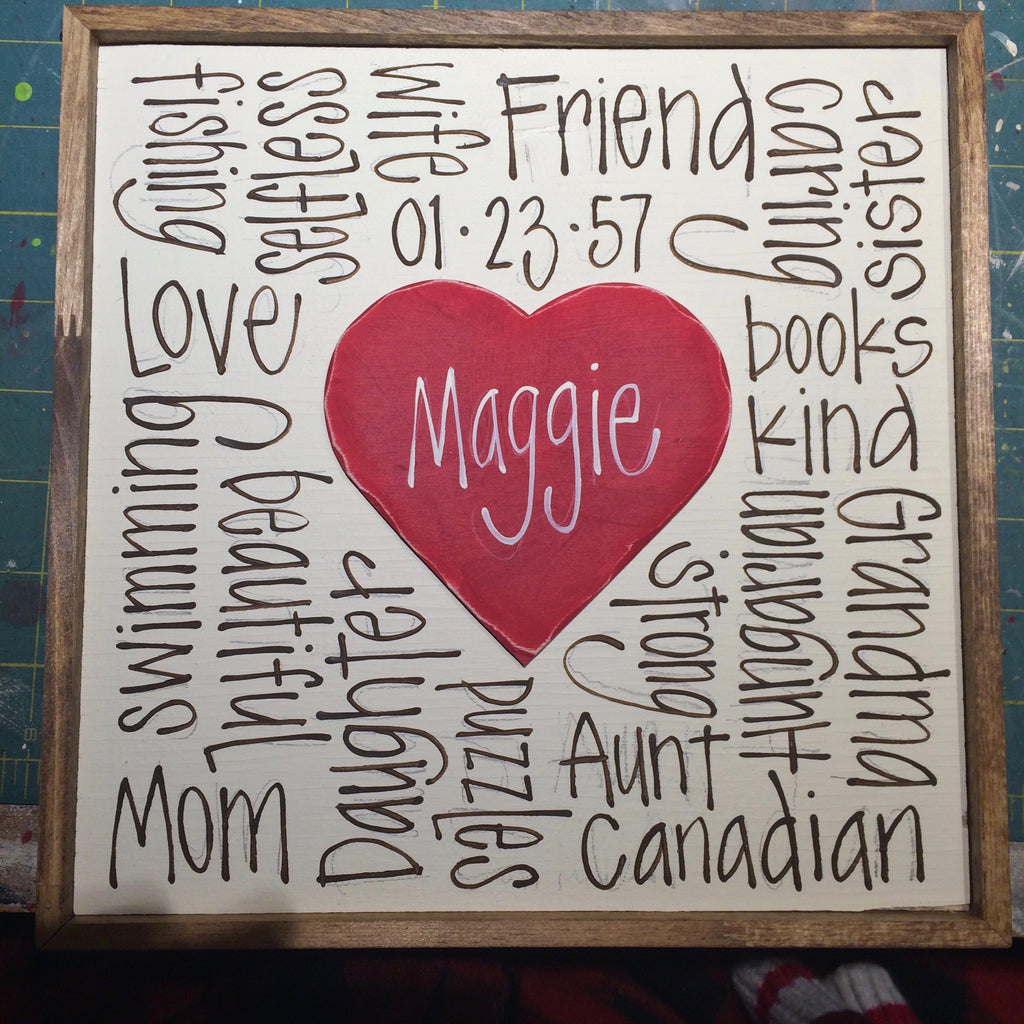 fishing
selfless
Wife
Friend
caring
sister
01·23·57
Love
books
Maggie
kind
swimming
beautiful
Daughter
puzzles
strong
Hungarian
Grandma
Aunt
Mom
Canadian